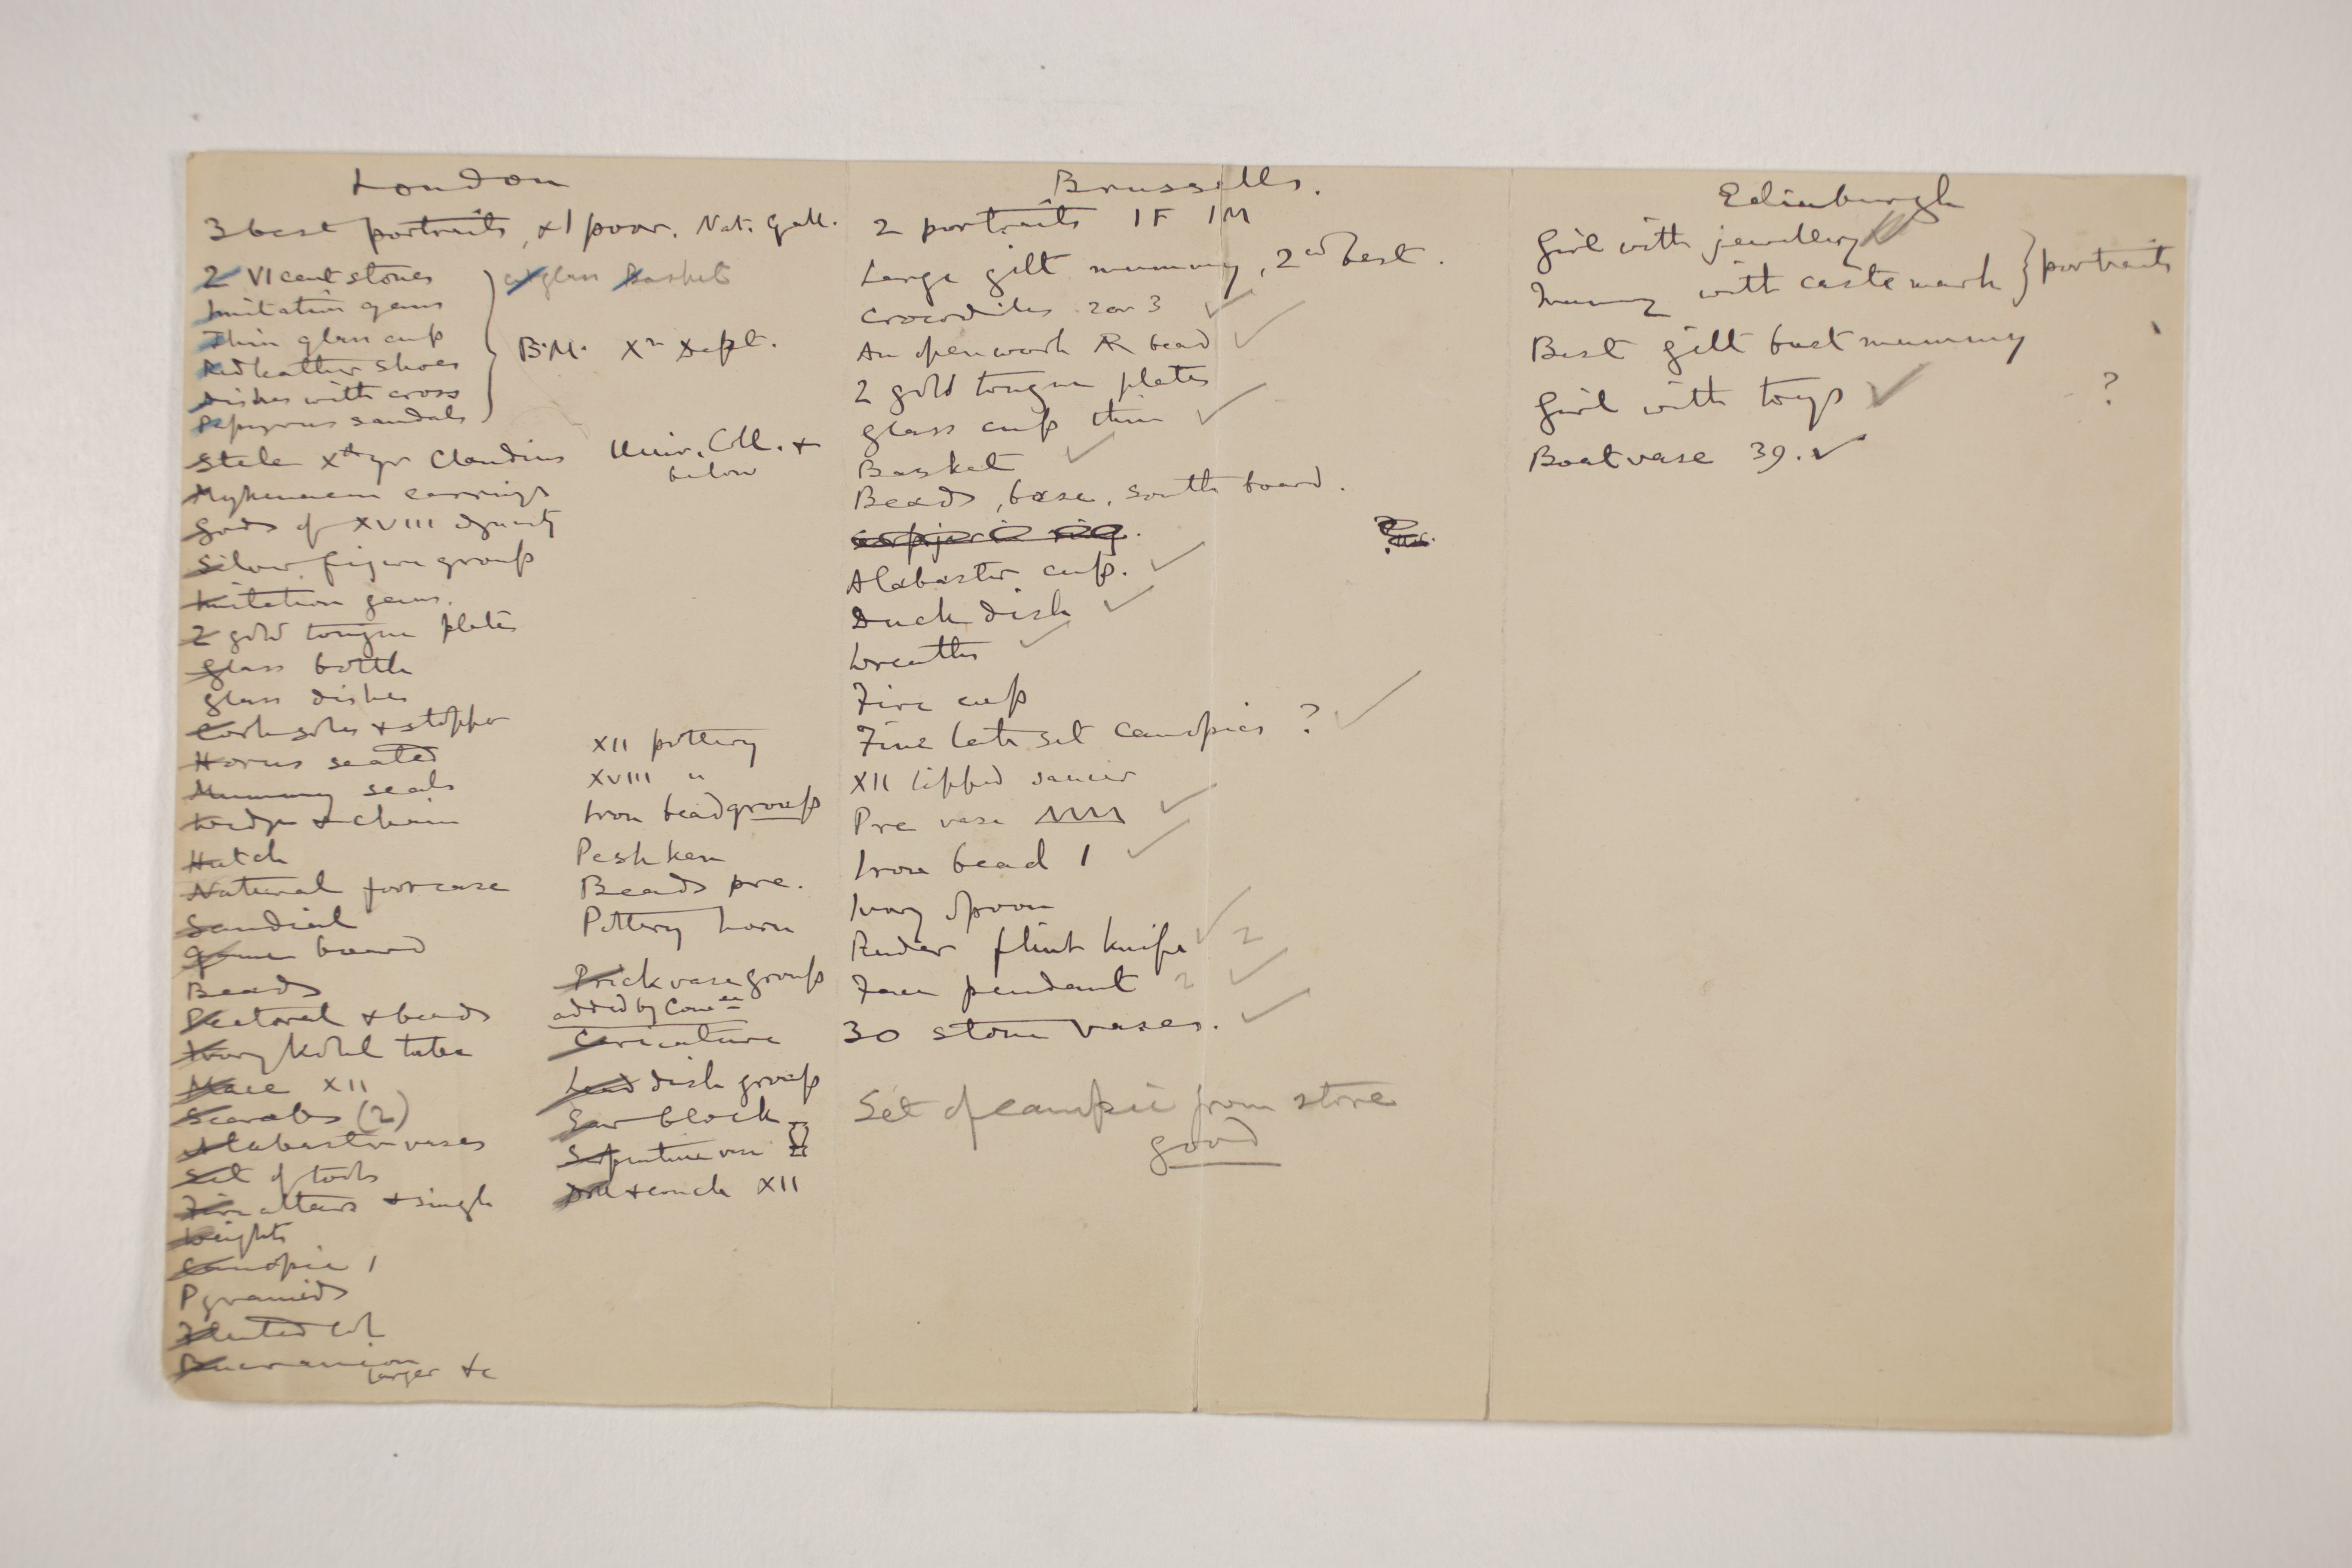 London
3 best portraits, & 1 poor. Nat. Gall.
2 VI cent stones
Imitation gems
Thin glass cup
Red leather shoes
Dishes with cross
Papyrus sandals
& glass baskets
B.M. Xn Dept.
Stele Xth yr Claudius Univ. Coll. &
below
Mykenaean earrings
Gods of XVIII dynasty
Silver figure group
Imitation gems.
2 gold tongue plates
Glass bottle
Glass dishes
Cork soles & stopper
Horus seated
Mummy seals
Wedge & chain
Hatch
Natural forecase
Sundial
Game board
Beads
Pectoral & beads
Ivory Kohl tube
Mace XII
Scarabs (2)
Alabaster vases
Set of tools
Fire altars & single
Weights
Canopic 1
Pyramids
Fluted col
Bucranion
larger &c
XII pottery
XVIII "
Iron bead group
Peshken
Beads pre.
Pottery horn
Brick vase group
added by Comee
Caricature
Lead dish group
Saw block
Serpentine vase
Doll & couch XII
Brussells.
2 portraits 1 F 1 M
Large gilt mummy, 2nd best.
Crocodiles 2 or 3
An openwork R bead
2 gold tongue plates
Glass cup thin
Basket
Beads, base, south board.
Alabaster cup.
Duck dish
Wreaths
Fire cup
Fine late set canopics ?
XII lipped saucer
Pre vase
Iron bead 1
Ivory spoon
Ruder flint knife 2
Face pendant 2
30 stone vases.
Set of canopic from store
good
Edinburgh
Girl with jewellery
Mummy with caste mark
portraits
Best gilt bust mummy
Girl with toys
?
Boat vase 39.